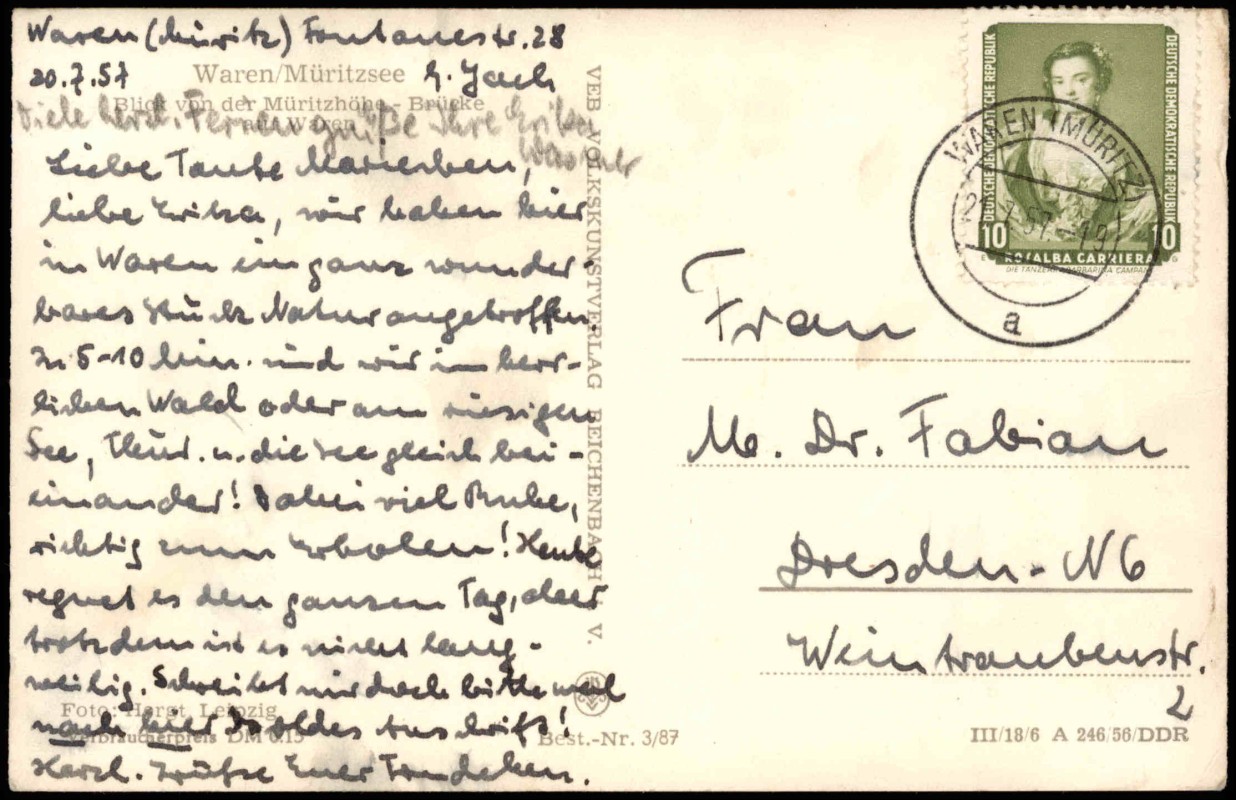 Waren (Müritz) Fontanestr. 28
20.7.57
Waren/Müritzsee
Blick von der Müritzhöhe - Brücke
auf Waren
Viele herzl. Feriengrüße Ihre Erika
Liebe Tante Mariechen,
liebe Erika, wir haben hier
in Waren ein ganz wunder-
bares Stück Natur angetroffen.
In 5-10 Min. sind wir im herr-
lichen Wald oder am riesigen
See, u. die See gleich bei-
einander! Dabei viel Ruhe,
richtig zum Erholen! Heute
regnet es den ganzen Tag, aber
trotzdem ist es nicht lang-
weilig. Schreibt mir doch bitte mal
nach hier Isoldes Anschrift!
Herzl. Grüße Euer
Foto: Horst, Leipzig
Verbraucherpreis DM 0.15
VEB VOLKSKUNSTVERLAG REICHENBACH i. V.
Best.-Nr. 3/87
III/18/6 A 246/56/DDR
DEUTSCHE DEMOKRATISCHE REPUBLIK
DEUTSCHE DEMOKRATISCHE REPUBLIK
10 10
ROSALBA CARRIERA
DIE TÄNZERIN BARBARINA CAMPANI
WAREN (MÜRITZ)
a
Frau
M. Dr. Fabian
Dresden-N6
Weintraubenstr.
2